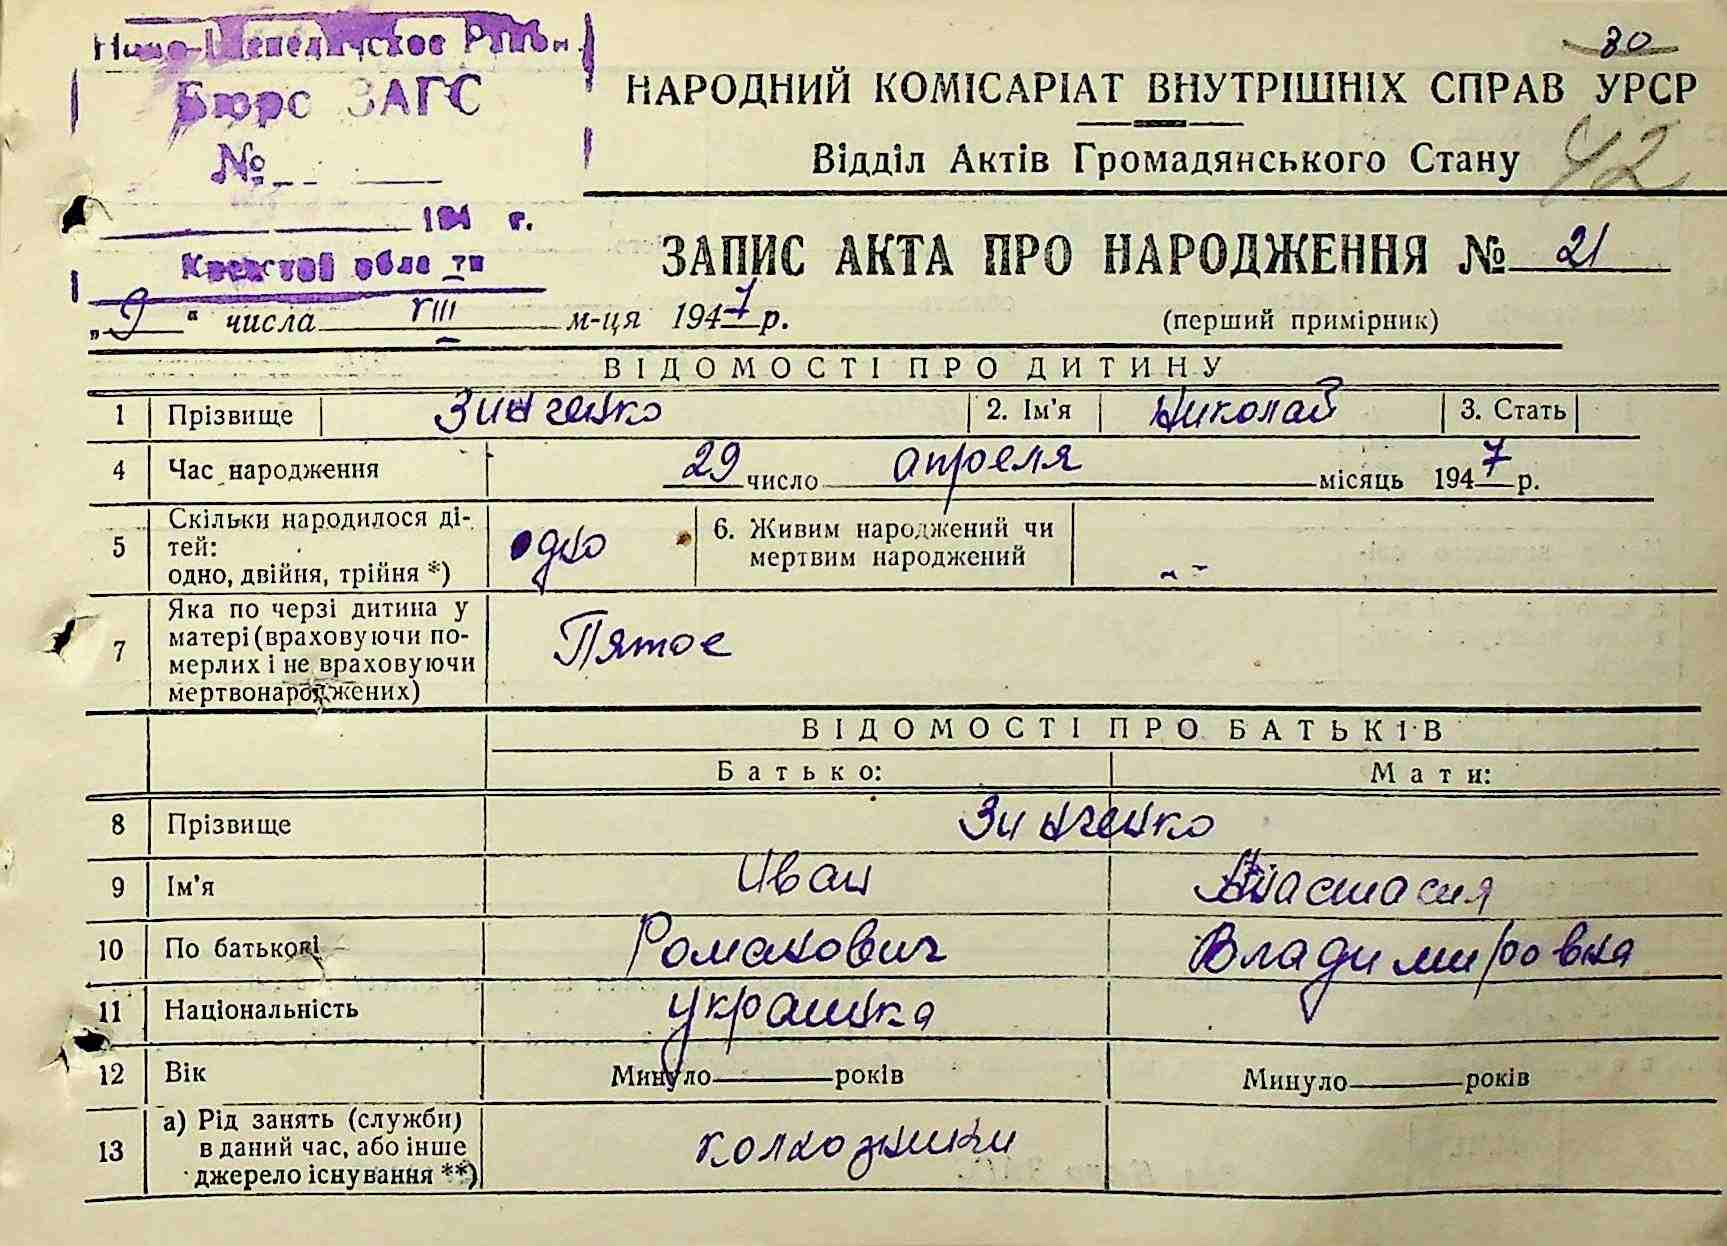 Бюро ЗАГС
80
НАРОДНИЙ КОМІСАРІАТ ВНУТРІШНІХ СПРАВ УРСР
№
Відділ Актів Громадянського Стану 42
194 г.
ЗАПИС АКТА ПРО НАРОДЖЕННЯ № 21
"9" числа VIII м-ця 1947 р. (перший примірник)
ВІДОМОСТІ ПРО ДИТИНУ
1 Прізвище Зинченко 2. Ім'я Николай 3. Стать
4 Час народження 29 число апреля місяць 1947 р.
5 Скільки народилося ді-
тей:
одно, двійня, трійня *) одно 6. Живим народжений чи
мертвим народжений
7 Яка по черзі дитина у
матері (враховуючи по-
мерлих і не враховуючи
мертвонароджених) Пятое
ВІДОМОСТІ ПРО БАТЬКІВ
Батько: Мати:
8 Прізвище Зинченко
9 Ім'я Иван Анастасия
10 По батькові Романович Владимировна
11 Національність
12 Вік Минуло років Минуло років
13 а) Рід занять (служби)
в даний час, або інше
джерело існування **) колхозники